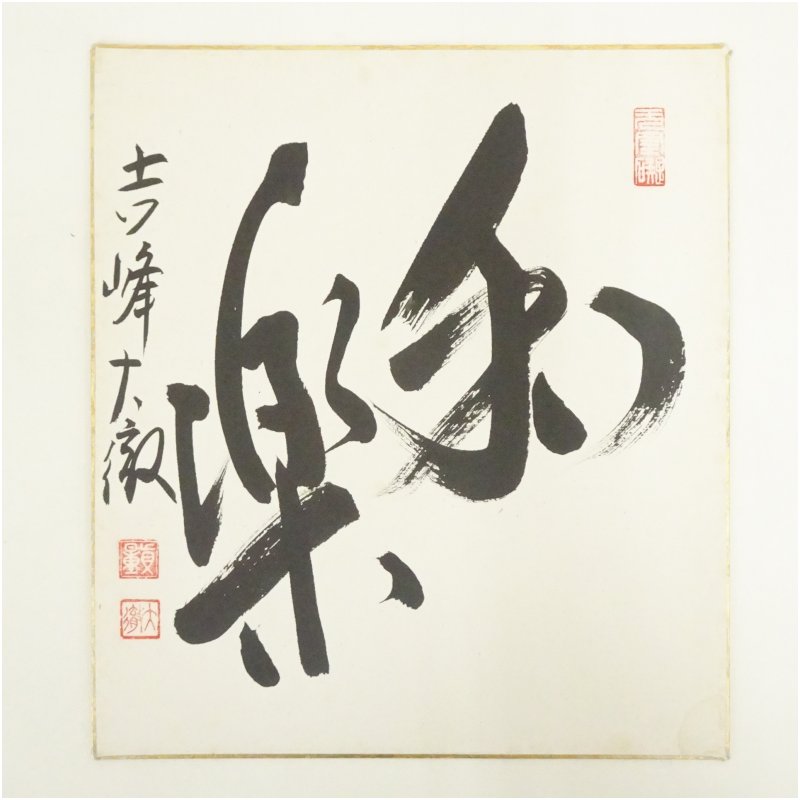 和楽
吉峰大徹
大徹